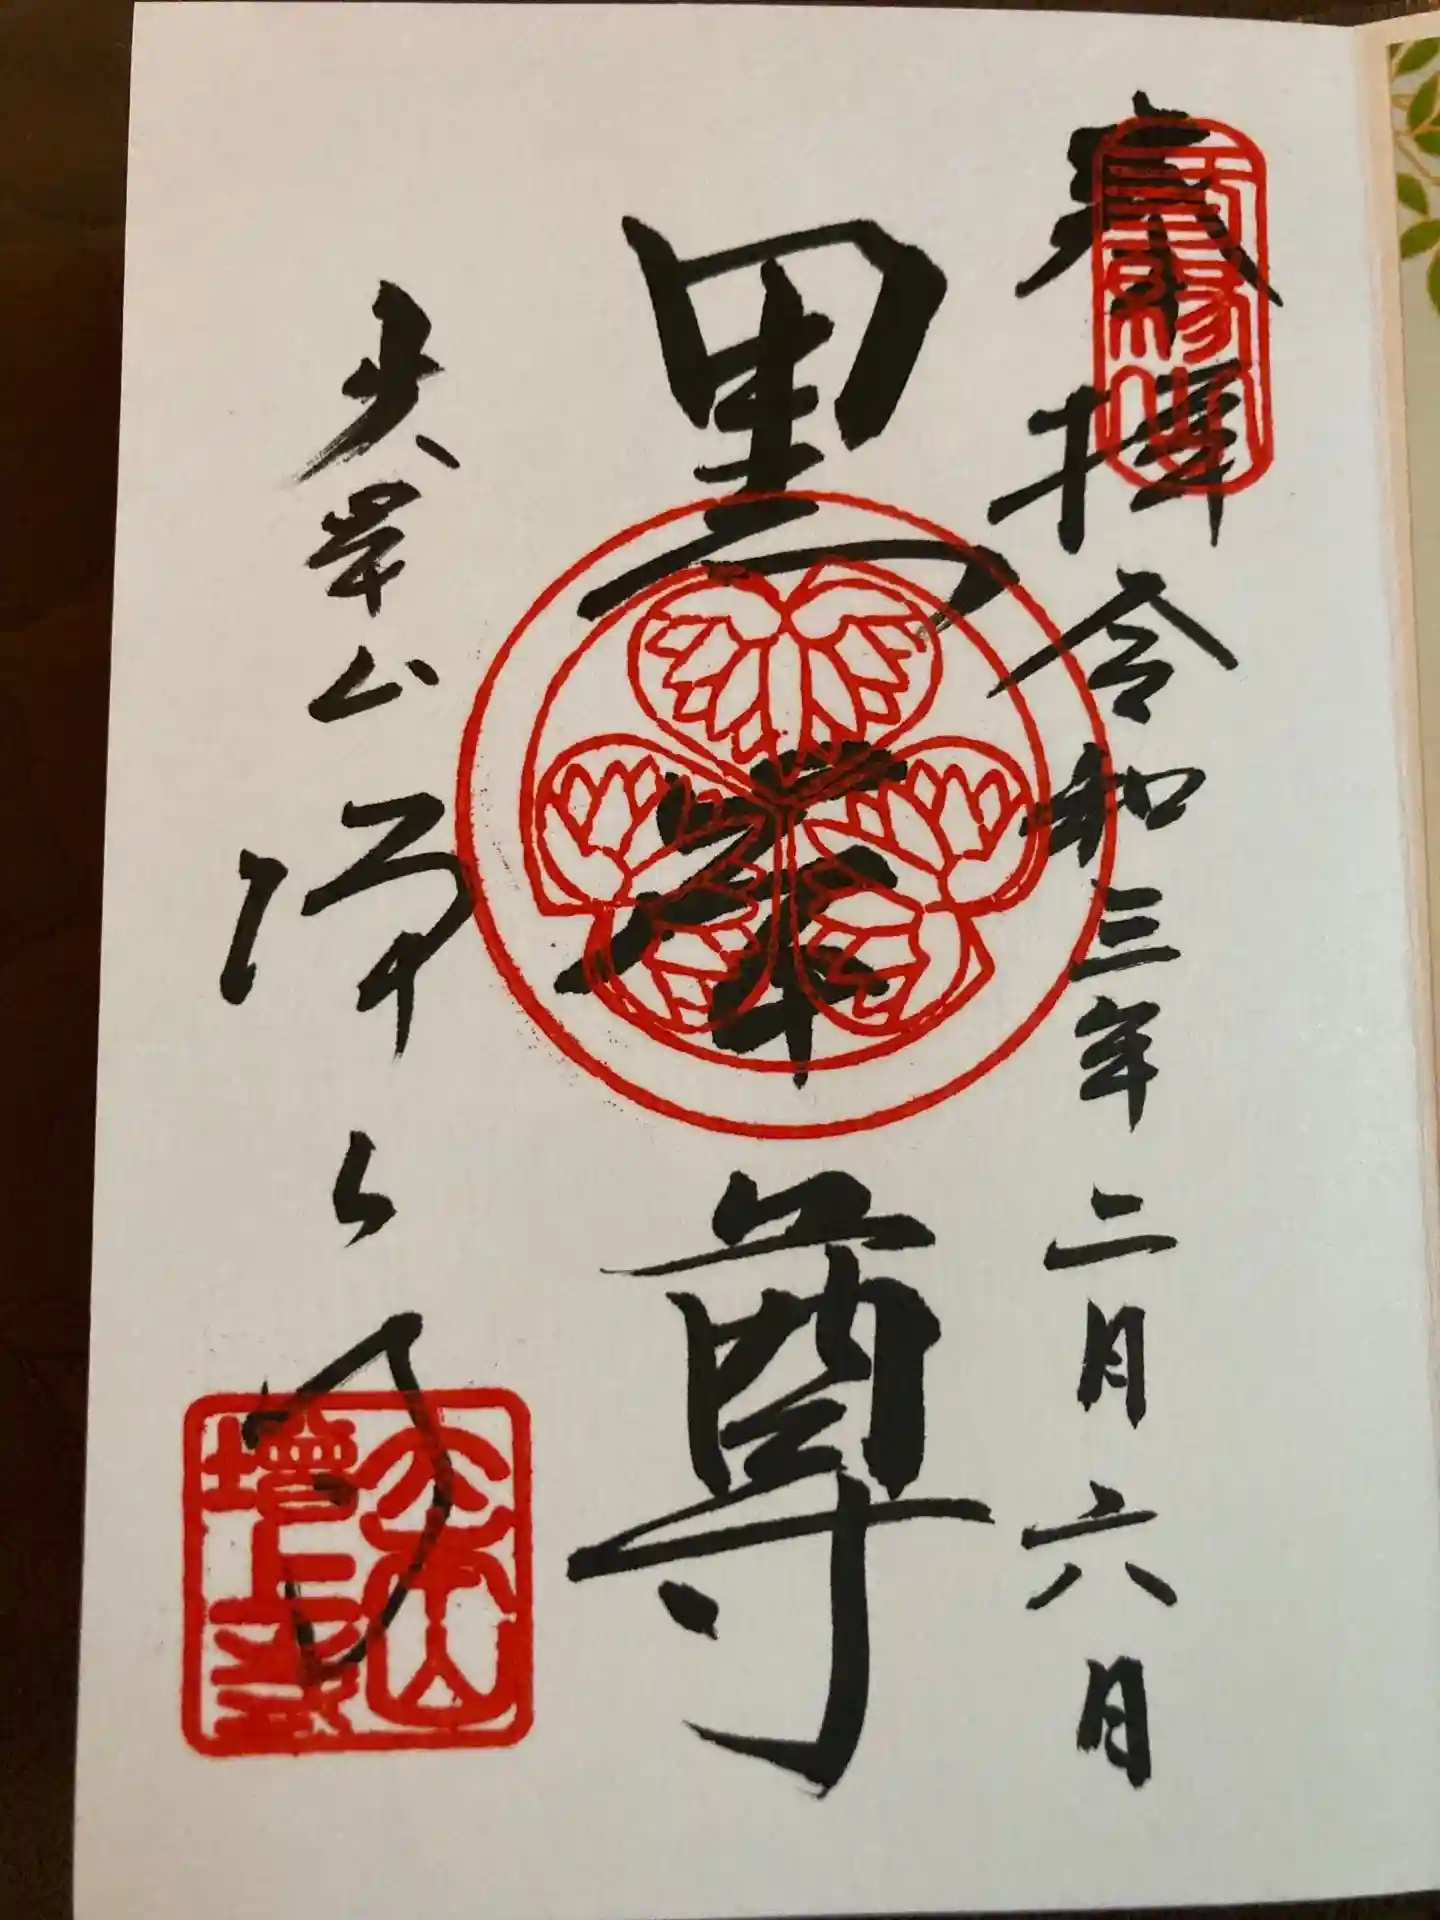 奉拝 令和三年二月六日
黒本尊
大本山 増上寺
三縁山
大本山
增上寺